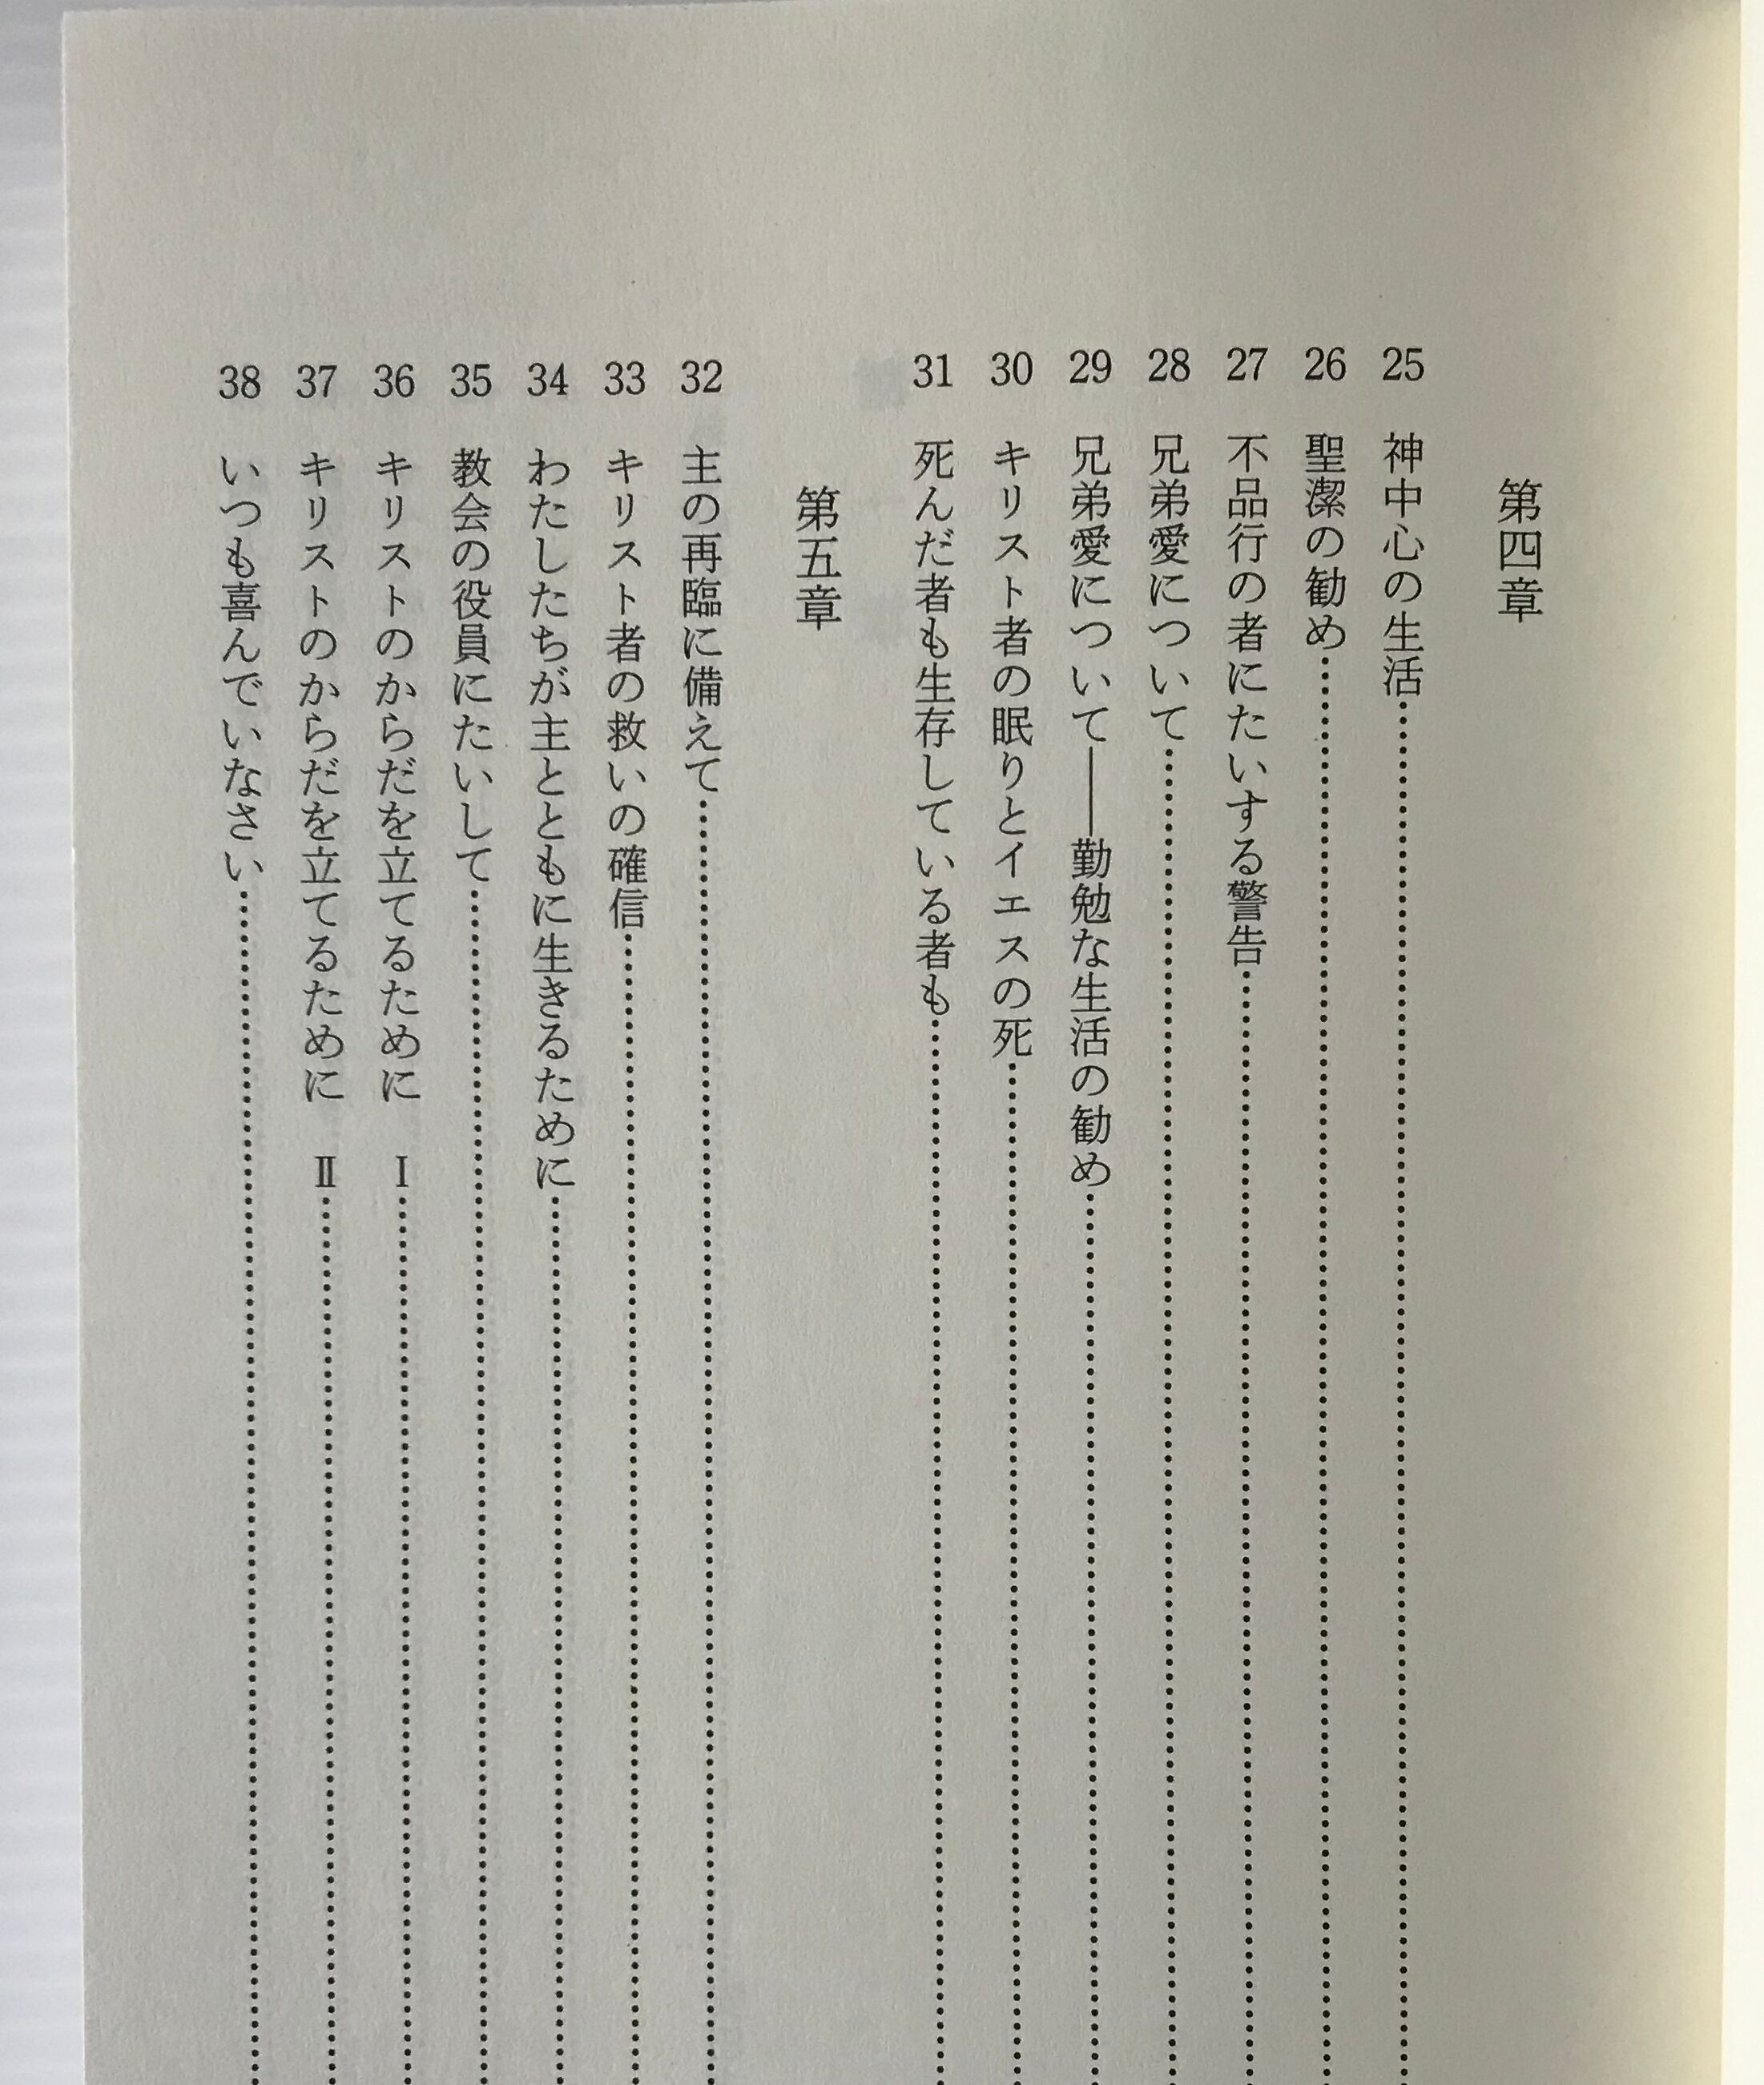 第四章
25 神中心の生活……………………
26 聖潔の勧め……………………
27 不品行の者にたいする警告……………………
28 兄弟愛について……………………
29 兄弟愛について――勤勉な生活の勧め……………………
30 キリスト者の眠りとイエスの死……………………
31 死んだ者も生存している者も……………………
第五章
32 主の再臨に備えて……………………
33 キリスト者の救いの確信……………………
34 わたしたちが主とともに生きるために……………………
35 教会の役員にたいして……………………
36 キリストのからだを立てるために Ⅰ……………………
37 キリストのからだを立てるために Ⅱ……………………
38 いつも喜んでいなさい……………………